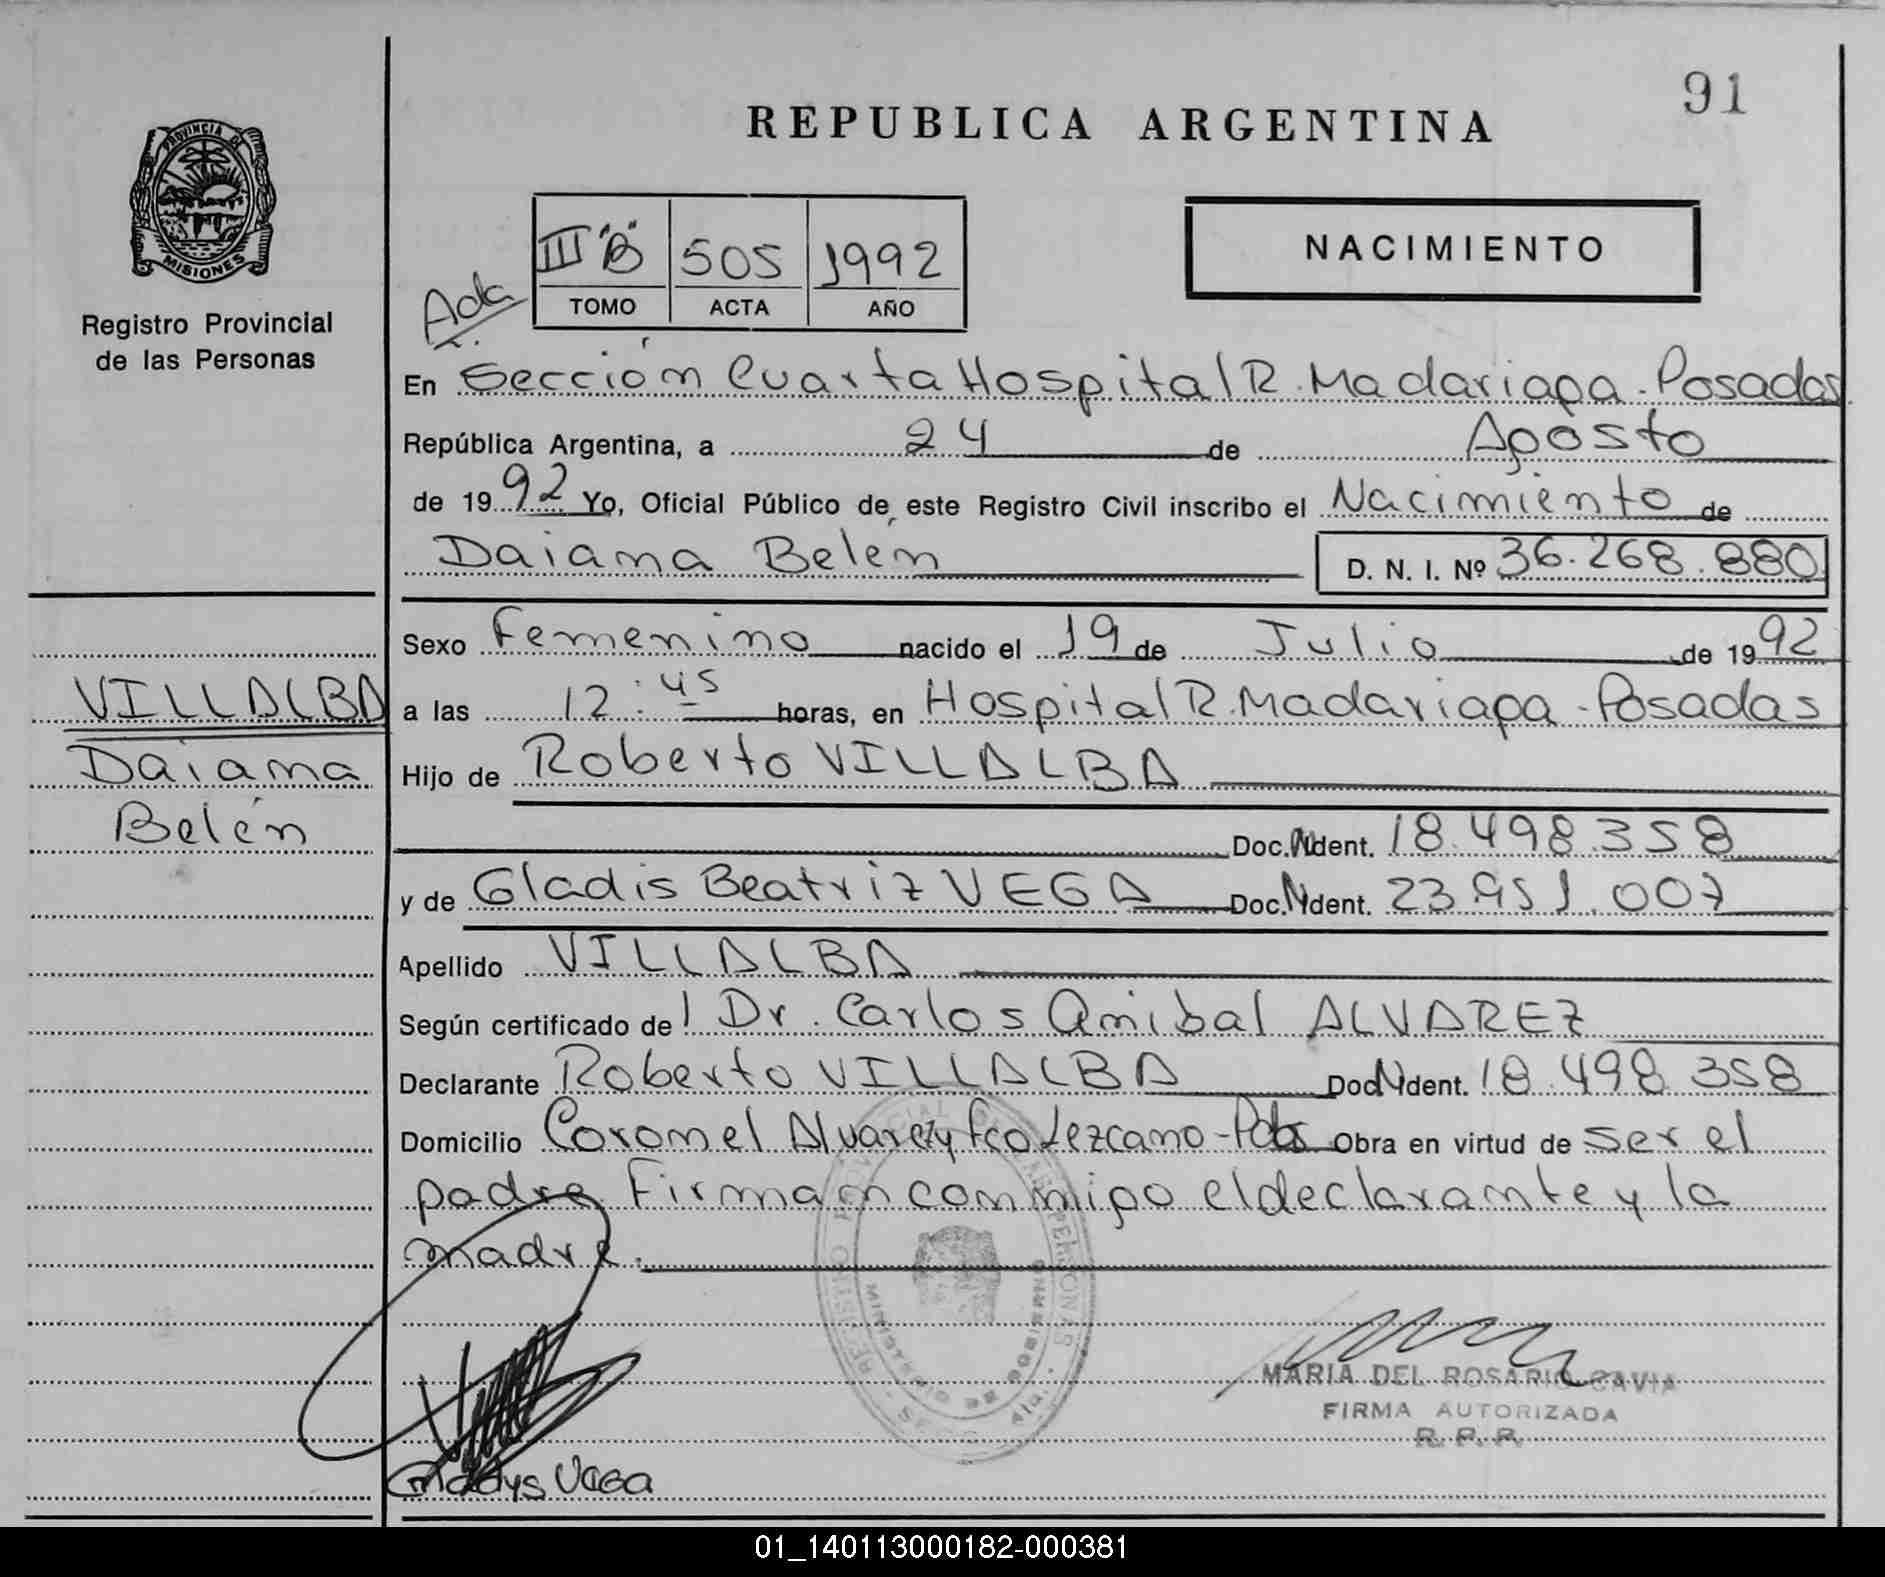 91
REPUBLICA ARGENTINA
PROVINCIA DE
MISIONES
Registro Provincial
de las Personas
III "B" 505 1992
TOMO ACTA AÑO
NACIMIENTO
En Sección Cuarta Hospital R. Madariaga - Posadas
República Argentina, a 24 de Agosto
de 1992 Yo, Oficial Público de este Registro Civil inscribo el Nacimiento de
Daiana Belén D. N. I. Nº 36.268.880
Sexo Femenino nacido el 19 de Julio de 1992
VILLALBA
Daiana
Belén
a las 12:45 horas, en Hospital R. Madariaga - Posadas
Hijo de Roberto VILLALBA
Doc. Ident. 18.498.358
y de Gladis Beatriz VEGA Doc. Ident. 23.951.007
Apellido VILLALBA
Según certificado del Dr. Carlos Anibal ALVAREZ
Declarante Roberto VILLALBA Doc. Ident. 18.498.358
Domicilio Coronel Alvarez y Fco Lezcano - Pdas Obra en virtud de ser el
padre. Firman conmigo el declarante y la
madre.
MARIA DEL ROSARIO CAVIA
FIRMA AUTORIZADA
R. P. P.
Gladys Vega
01_140113000182-000381